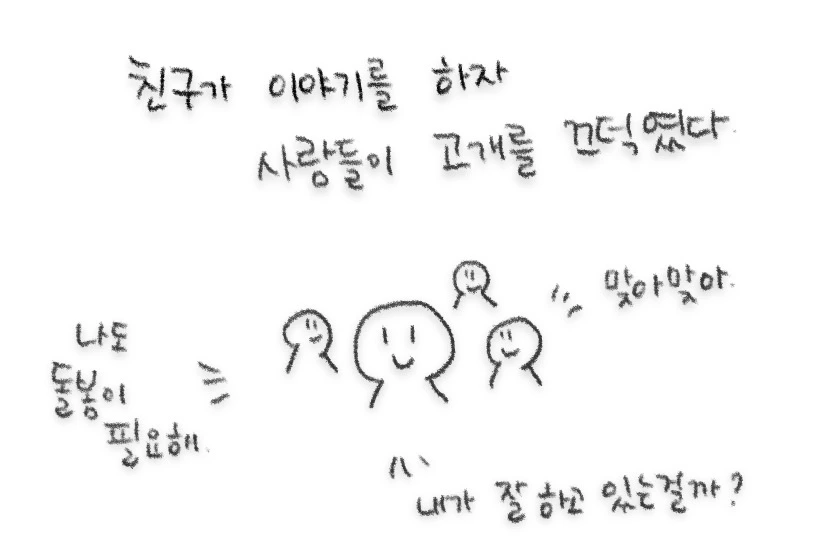 친구가 이야기를 하자
사람들이 고개를 끄덕였다.
맞아맞아.
나도
돌봄이
필요해.
내가 잘 하고 있는걸까?